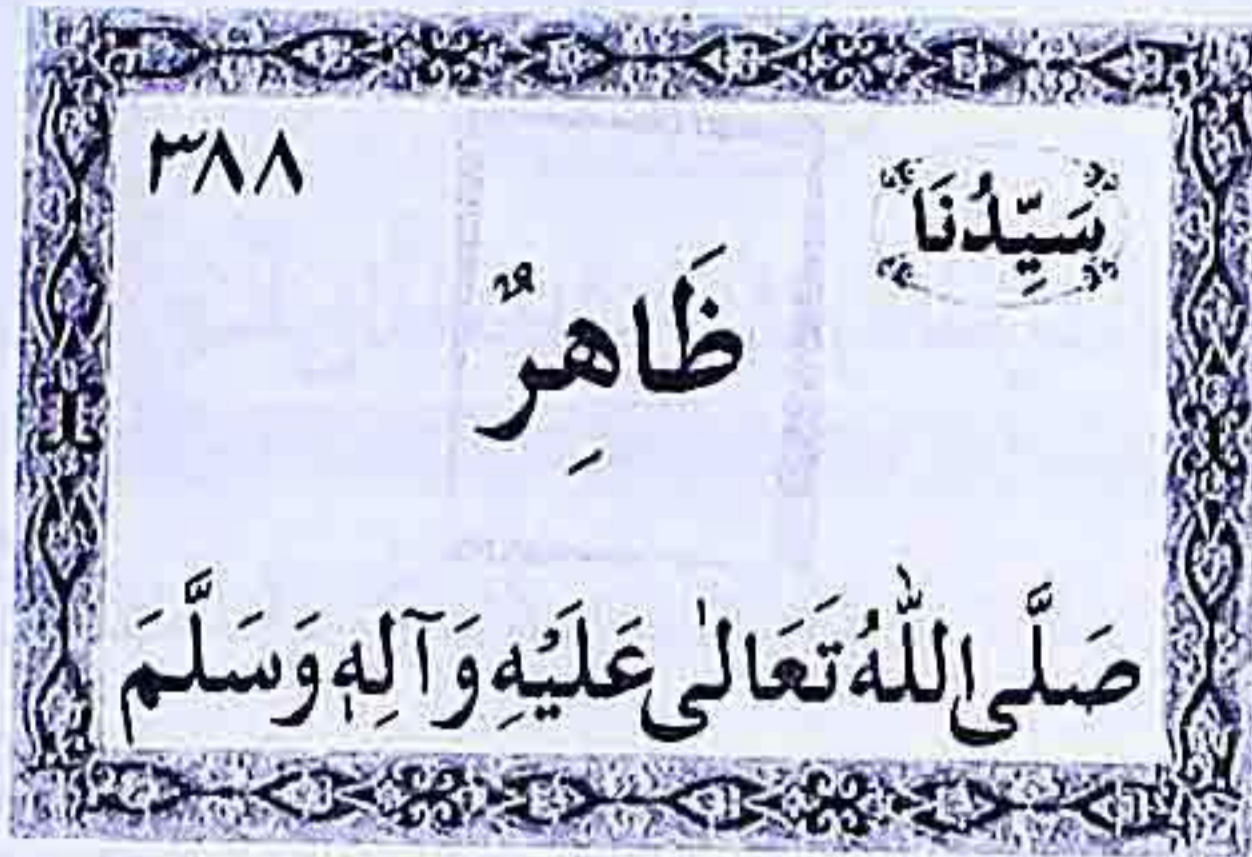 ٣٨٨
سَيِّدُنَا
ظَاهِرٌ
صَلَّى اللّٰهُ تَعَالٰى عَلَيْهِ وَآلِهٖ وَسَلَّمَ